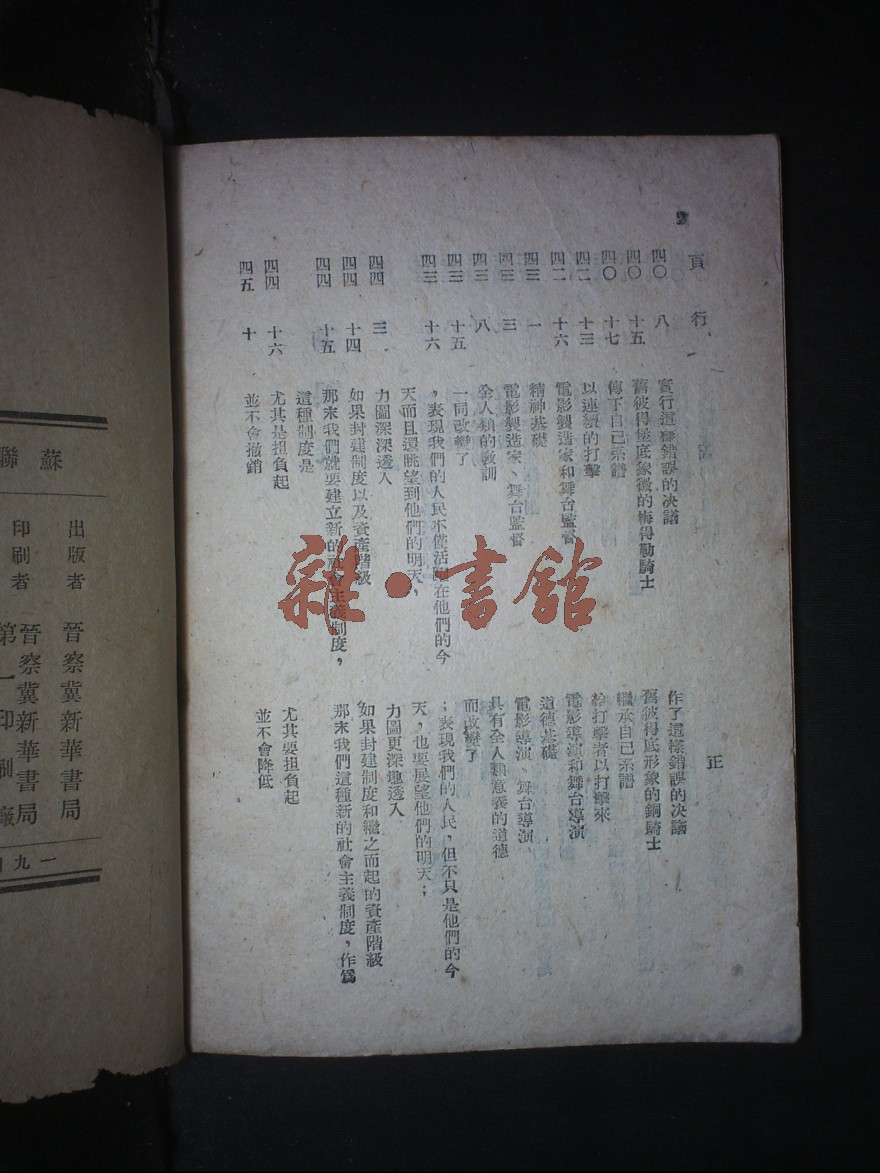 2
頁 行 正
四〇 八 實行這樣錯誤的决議 作了這樣錯誤的决議
四〇 十五 舊彼得堡底象徵的梅得勒騎士 舊彼得底形象的銅騎士
四〇 十七 傳下自己系譜 繼承自己系譜
四二 十三 以連續的打擊 給打擊者以打擊來
四二 十六 電影製造家和舞台監督 電影導演和舞台導演
四三 一 精神基礎 道德基礎
四三 三 電影製造家、舞台監督 電影導演、舞台導演、
四三 八 全人類的教訓 具有全人類意義的道德
四三 十五 一同改變了 而改變了
四三 十六 ，表現我們的人民不僅活動在他們的今 ；表現我們的人民，但不只是他們的今
天而且還眺望到他們的明天， 天，也要展望他們的明天；
四四 三 力圖深深透入 力圖更深地透入
四四 十四 如果封建制度以及資產階級 如果封建制度和繼之而起的資產階級
四四 十五 那來我們就要建立新的社會主義制度， 那來我們這種新的社會主義制度，作爲
這種制度是
四四 十六 尤其是担負起 尤其要担負起
四五 十 並不會撤銷 並不會降低
雜·書館
蘇聯
出版者 晉察冀新華書局
印刷者 晉察冀新華書局
第一印刷廠
一九